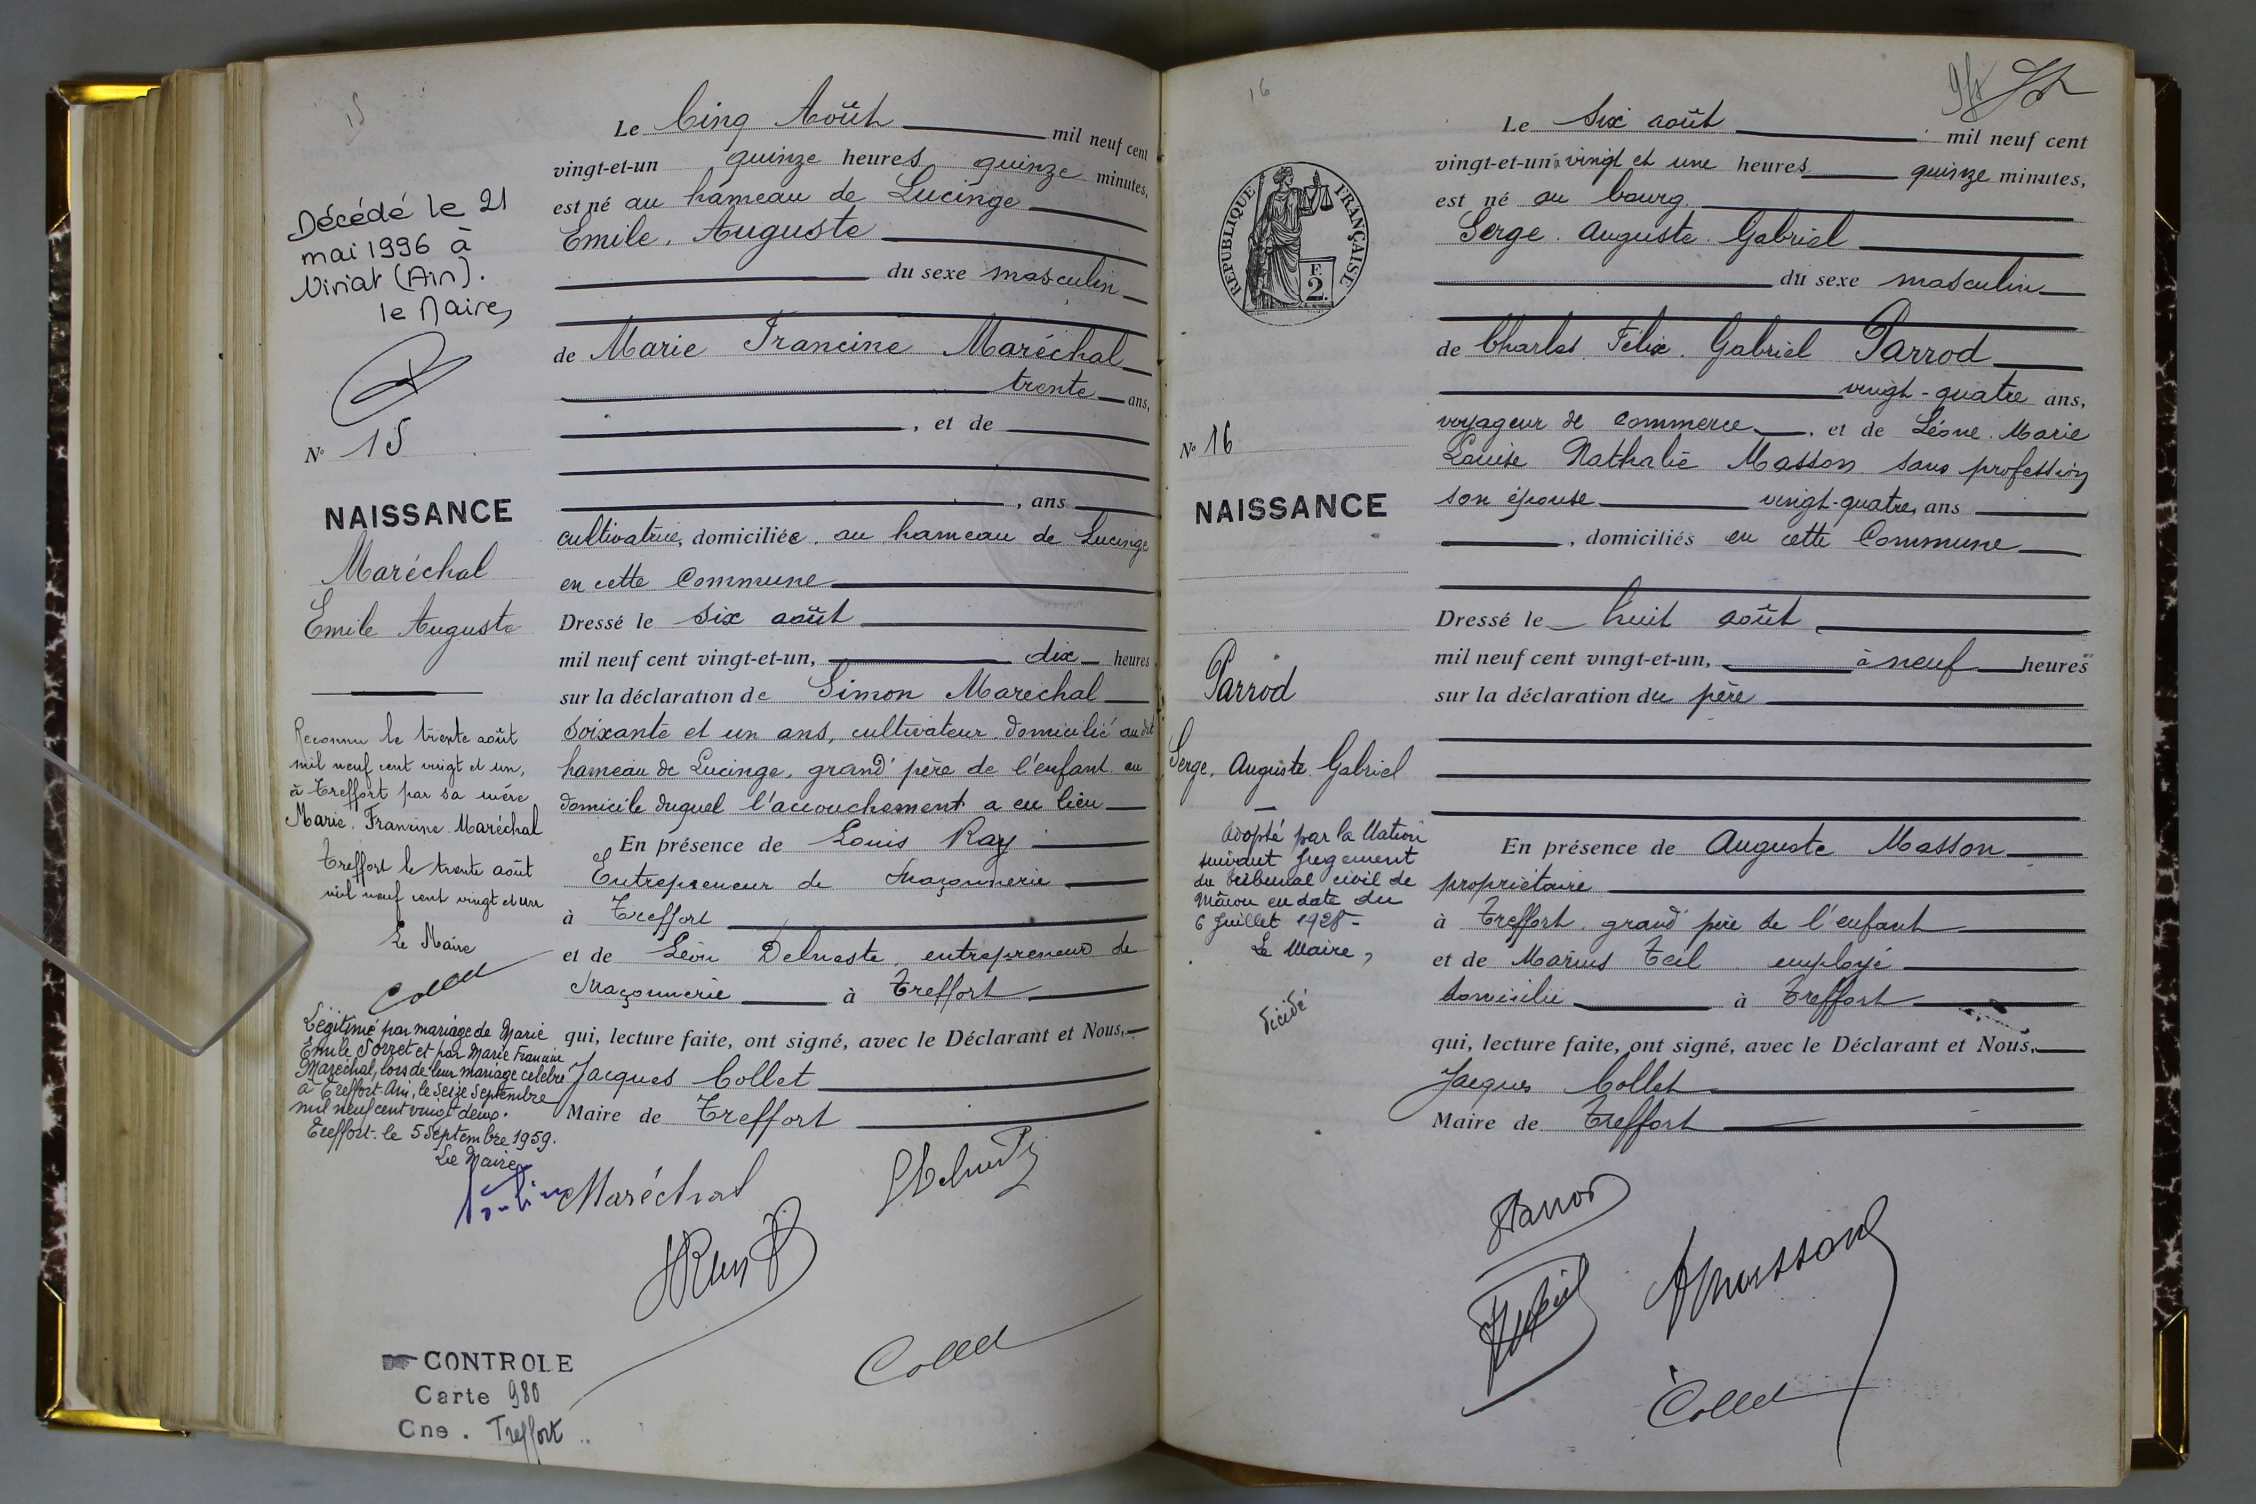 15
Le Cinq Août mil neuf cent
vingt-et-un quinze heures quinze minutes,
est né au hameau de Lucinge
Emile, Auguste
du sexe masculin
de Marie Francine Maréchal
trente ans,
, et de
, ans
cultivatrice, domiciliée, au hameau de Lucinge
en cette Commune
Dressé le six août
mil neuf cent vingt-et-un, dix heures
sur la déclaration de Simon Maréchal
soixante et un ans, cultivateur, domicilié au dit
hameau de Lucinge, grand'père de l'enfant au
domicile duquel l'accouchement a eu lieu
En présence de Louis Ray
Entrepreneur de Maçonnerie
à Treffort
et de Léon entrepreneur de
Maçonnerie à Treffort
qui, lecture faite, ont signé, avec le Déclarant et Nous,
Jacques Collet
Maire de Treffort
Maréchal
Collet
Décédé le 21
mai 1996 à
Viriat (Ain).
le Maire,
N° 15
NAISSANCE
Maréchal
Emile Auguste
Reconnu le trente août
mil neuf cent vingt et un,
à Treffort par sa mère
Marie, Francine Maréchal
Treffort le trente août
mil neuf cent vingt et un
Le Maire
Collet
Légitimé par mariage de Marie
Emile Sorret et par Marie Francine
Maréchal, lors de leur mariage célébré
à Treffort-Ain, le seize septembre
mil neuf cent vingt deux.
Treffort le 5 septembre 1959.
Le Maire
CONTROLE
Carte 980
Cne. Treffort
16
Le Six août mil neuf cent
vingt-et-un, vingt et une heures quinze minutes,
est né au bourg
Serge, Auguste, Gabriel
du sexe masculin
de Charles, Félix, Gabriel Parrod
vingt-quatre ans,
voyageur de commerce, et de Léone, Marie
Louise Nathalie Masson sans profession
son épouse vingt-quatre, ans
, domiciliés en cette Commune
Dressé le huit août
mil neuf cent vingt-et-un, à neuf heures
sur la déclaration du père
En présence de Auguste Masson
propriétaire
à Treffort, grand'père de l'enfant
et de Marius Teil employé
domicilié à Treffort
qui, lecture faite, ont signé, avec le Déclarant et Nous,
Jacques Collet
Maire de Treffort
Parrod
AMasson
Collet
REPUBLIQUE FRANÇAISE
F.
2.
N° 16
NAISSANCE
Parrod
Serge, Auguste Gabriel
Adopté par la Nation
suivant Jugement
du tribunal civil de
Mâcon en date du
6 Juillet 1928-
Le Maire,